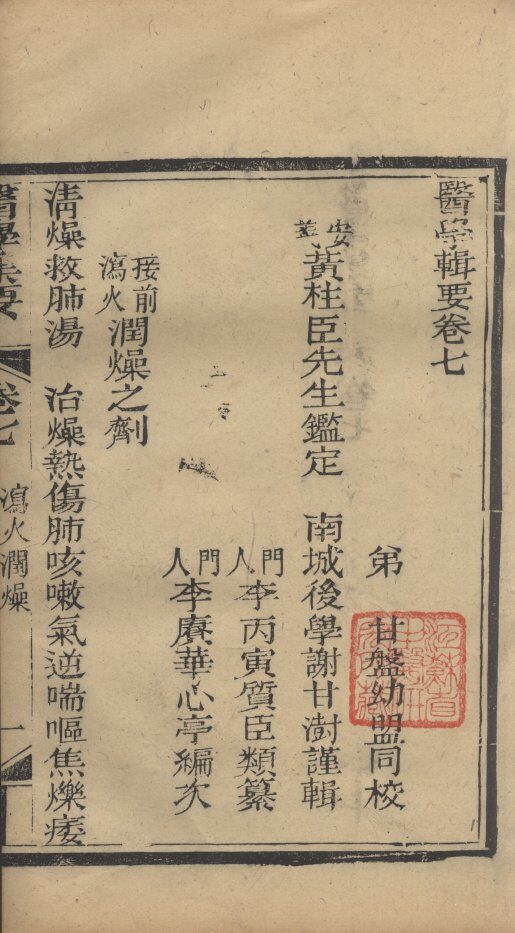 醫學輯要卷七
弟 甘盤幼盟同校
安義黃柱臣先生鑑定 南城後學謝甘澍謹輯
門人李丙寅質臣類纂
門人李賡華心亭編次
接前瀉火潤燥之劑
清燥救肺湯 治燥熱傷肺咳嗽氣逆喘嘔焦爍痿
醫學集要 卷七 瀉火潤燥 一